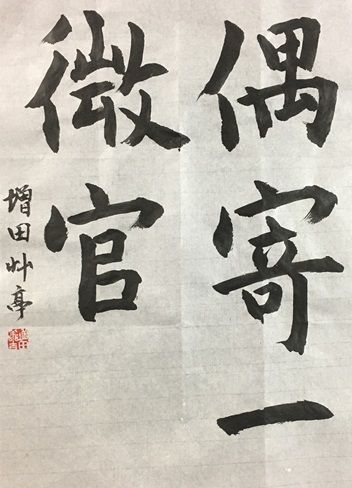 偶寄一
微官
増田艸亭